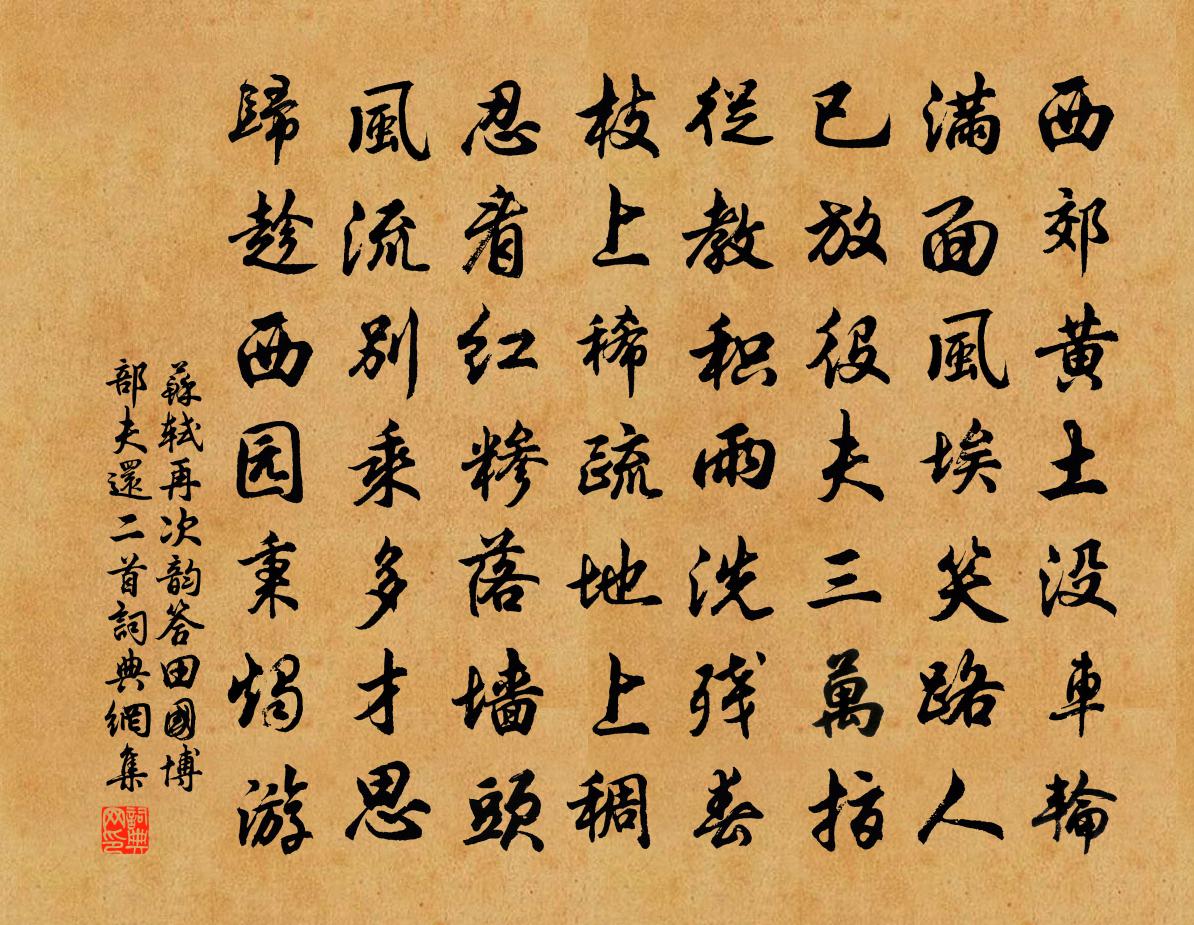 西郊黄土没車輪
满面風埃笑路人
已放役夫三萬指
從教积雨洗残春
枝上稀疏地上稠
忍看红糁落墙頭
風流别乘多才思
歸趁西园秉燭游
蘇軾再次韵答田國博
部夫還二首詞典網集
詞典网印